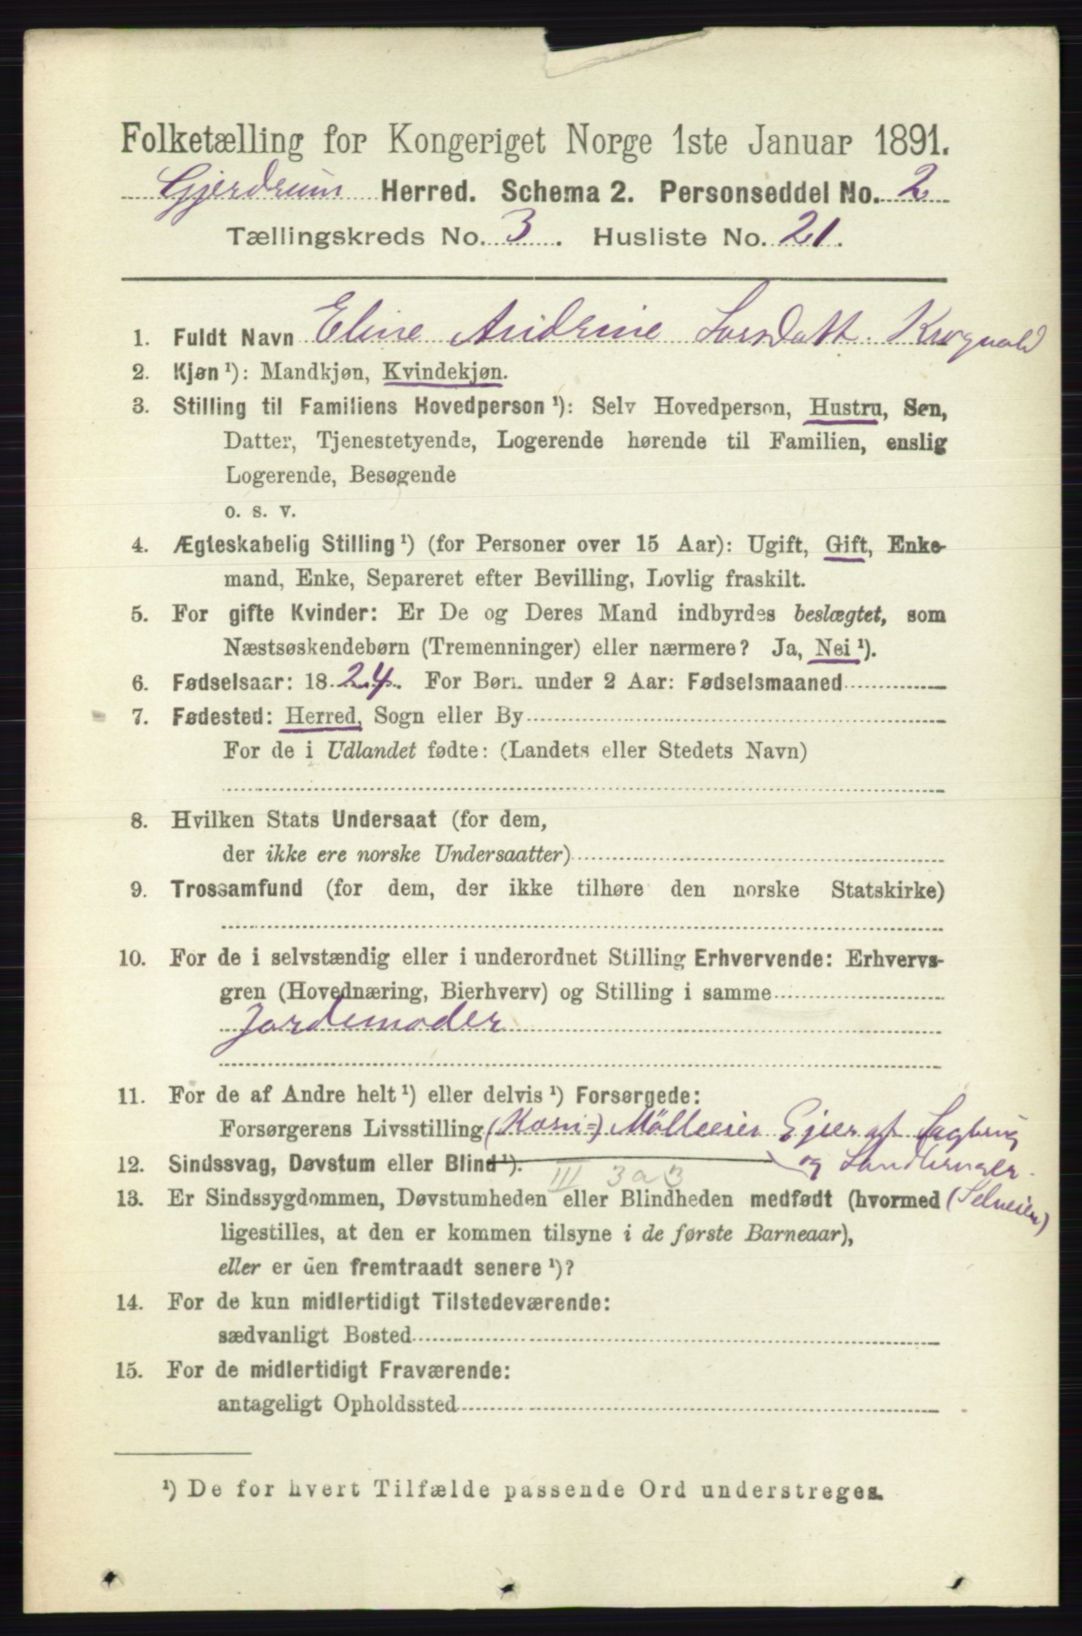 Folketælling for Kongeriget Norge 1ste Januar 1891.
Gjerdrum Herred. Schema 2. Personseddel No. 2
Tællingskreds No. 3. Husliste No. 21.
1. Fuldt Navn Eline Andrine Larsdatt. Krogvold
2. Kjøn ¹): Mandkjøn, Kvindekjøn.
3. Stilling til Familiens Hovedperson ¹): Selv Hovedperson, Hustru, Søn,
Datter, Tjenestetyende, Logerende hørende til Familien, enslig
Logerende, Besøgende
o. s. v.
4. Ægteskabelig Stilling ¹) (for Personer over 15 Aar): Ugift, Gift, Enke-
mand, Enke, Separeret efter Bevilling, Lovlig fraskilt.
5. For gifte Kvinder: Er De og Deres Mand indbyrdes beslægtet, som
Næstsøskendebørn (Tremenninger) eller nærmere? Ja, Nei ¹).
6. Fødselsaar: 1824. For Børn under 2 Aar: Fødselsmaaned
7. Fødested: Herred, Sogn eller By
For de i Udlandet fødte: (Landets eller Stedets Navn)
8. Hvilken Stats Undersaat (for dem,
der ikke ere norske Undersaatter)
9. Trossamfund (for dem, der ikke tilhøre den norske Statskirke)
10. For de i selvstændig eller i underordnet Stilling Erhvervende: Erhvervs-
gren (Hovednæring, Bierhverv) og Stilling i samme
Jordemoder
11. For de af Andre helt ¹) eller delvis ¹) Forsørgede:
Forsørgerens Livsstilling (Korn=) Mølleeier Ejer af Sagbrug
12. Sindssvag, Døvstum eller Blind ¹). og Landbruger
III 3 a 3
13. Er Sindssygdommen, Døvstumheden eller Blindheden medfødt (hvormed (Selveier)
ligestilles, at den er kommen tilsyne i de første Barneaar),
eller er den fremtraadt senere ¹)?
14. For de kun midlertidigt Tilstedeværende:
sædvanligt Bosted
15. For de midlertidigt Fraværende:
antageligt Opholdssted
¹) De for hvert Tilfælde passende Ord understreges.